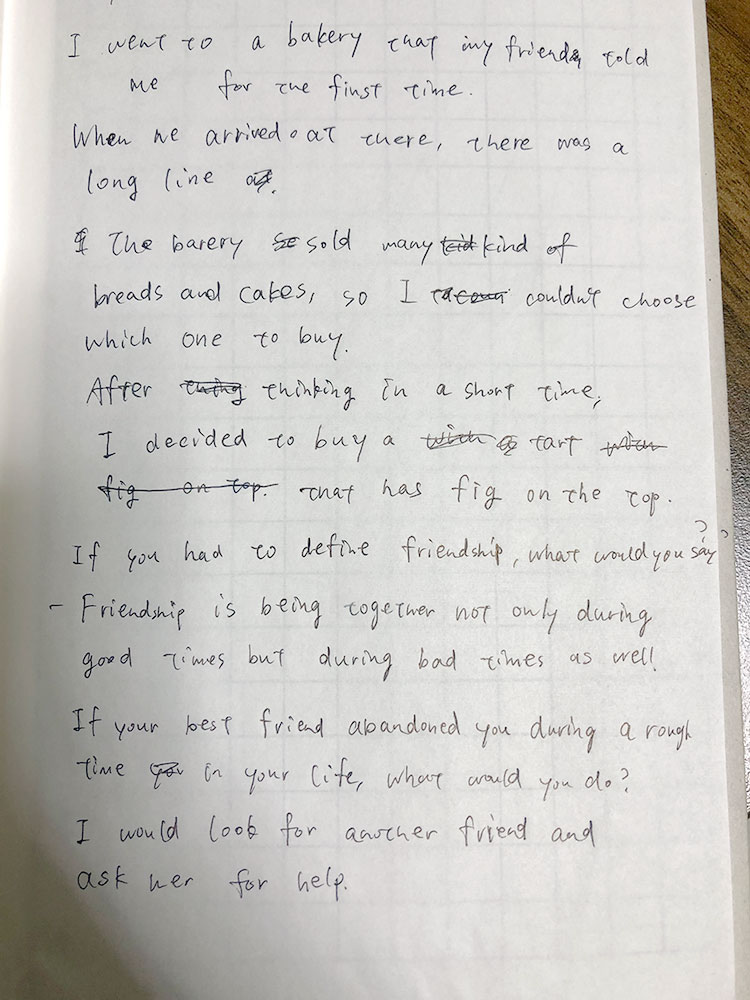 I went to a bakery that my friends told
me for the first time.
When we arrived at there, there was a
long line
The barery sold many kind of
breads and cakes, so I couldn't choose
which one to buy.
After thinking in a short time,
I decided to buy a tart
that has fig on the top.
If you had to define friendship, what would you say?
- Friendship is being together not only during
good times but during bad times as well.
If your best friend abandoned you during a rough
time in your life, what would you do?
I would look for another friend and
ask her for help.